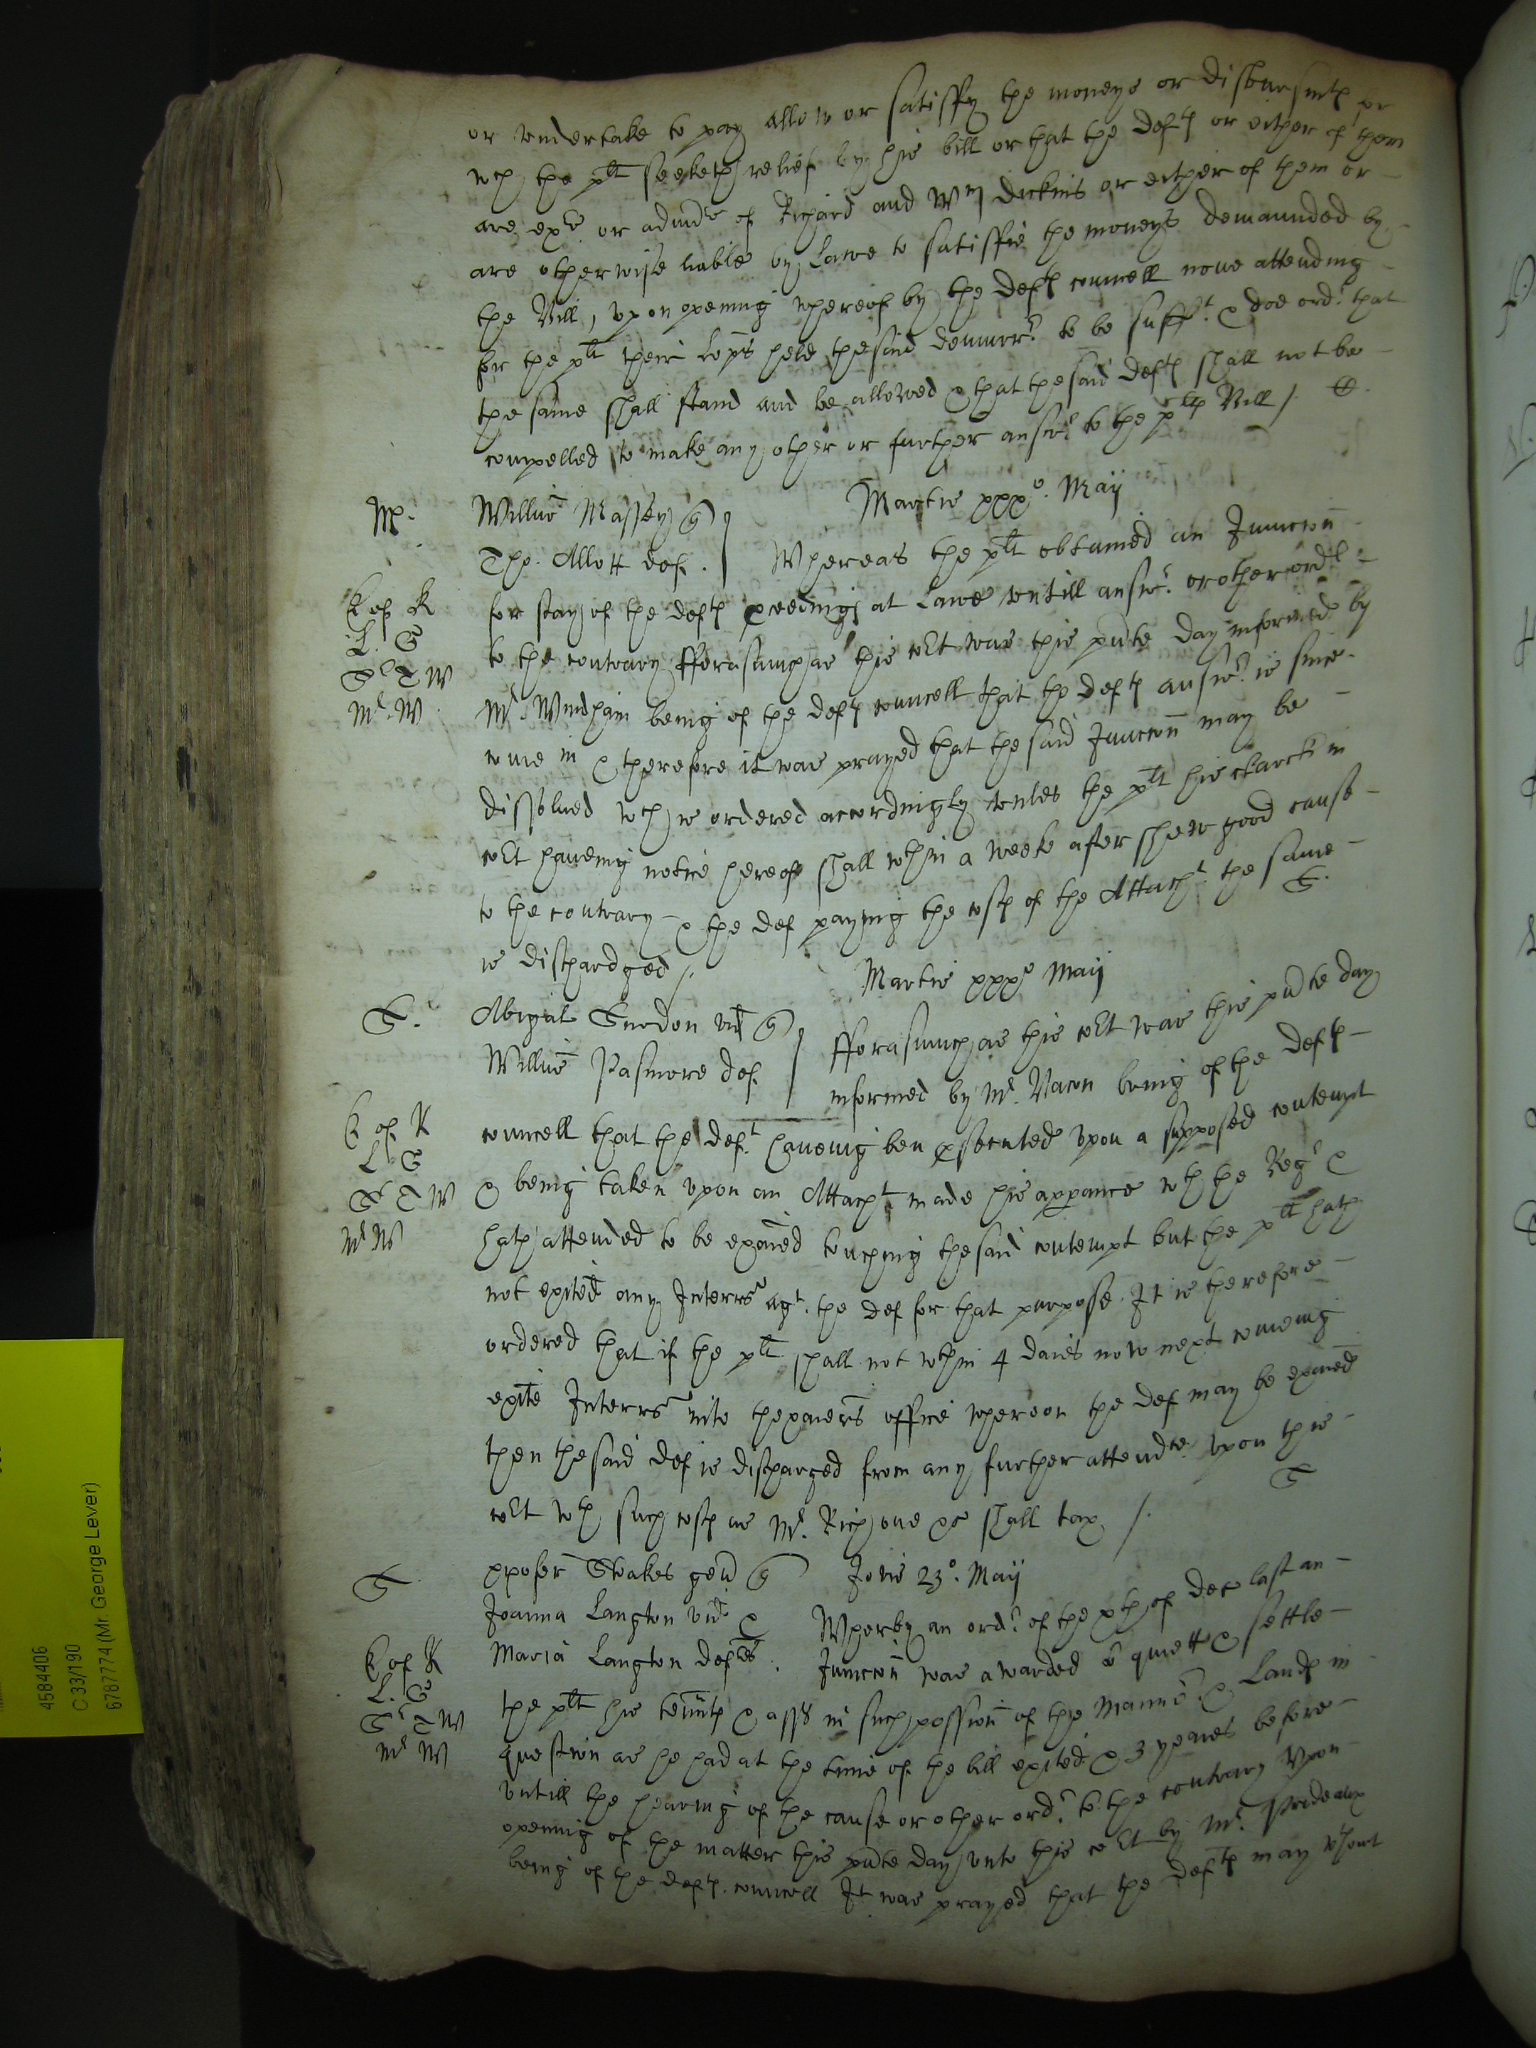 or vndertake to pay allow or satisffy the moneys or disbursmts for
wch the plt seeketh relief by his bill or that the defts or either of them
are exrs or admrs of Richard and Wm Dickins or either of them or
are otherwise liable by Lawe to satisffie the moneys demaunded by
the Bill, vpon opening whereof by the defts councell none attending
for the plt their Lopps held the said demurr to be sufft & doe ordr that
the same shall stand and be allowed & that the said defts shall not be
compelled to make any other or further answr to the plts Bill /
Martis xxxo. Maij
Willus Massey
Tho. Allott def.
Whereas the plt obtained an Iunccon
for stay of the defts pceedings at Lawe vntill answr. or other ordr
to the contrary fforasmuch as this Cot was this pnte day informed by
Mr. Windham being of the defts councell that the defts answr. is since
come in & therefore it was prayed that the said Iunccon may be
dissolued wch is ordered accordingly vnles the plt his clarck in
Cot haueing notice hereof shall wthin a weeke after shew good cause
to the contrary & the def paying the costs of the Attachmt. the same
is dischardged /.
Martis xxxo Maij
Abigal Gurdon vid
Willus Pasmore def.
fforasmuch as this Cot was this pnte day
informed by Mr. Bacon being of the defts
councell that the deft. haueing ben psecuted vpon a supposed contempt
& being taken vpon an Attachmt made his appance wth the Regr &
hath attended to be exaied touching the said contempt but the plt hath
not exited any Interrs agt. the def for that purpose. It is therefore
ordered that if the plt shall not wthin 4 daies now next comeing
exite Interrs into thexaiers office whereon the def may be exaied
then the said def is discharged from any further attendce vpon this
Cot wth such costs as Mr. Rich one &c shall tax /.
Xpofer Stoakes gen
Iovis 23o. Maij
Joanna Langton vid &
Maria Langton defts.
Wherby an ordr. of the xth of Dec last an
Iunccon was awarded to quiett & settle
the plt his tennts & asss in such possession of the Mannor. & Lands in
question as he had at the time of the bill exited & 3 yeares before
vntill the hearing of the cause or other ordr. to the contrary Vpon
opening of the matter this pnte day vnto this Cot by Mr. Prideaux
being of the defts. councell It was prayed that the defts may wthout
4584406
C 33/190
6787774 (Mr. George Lever)